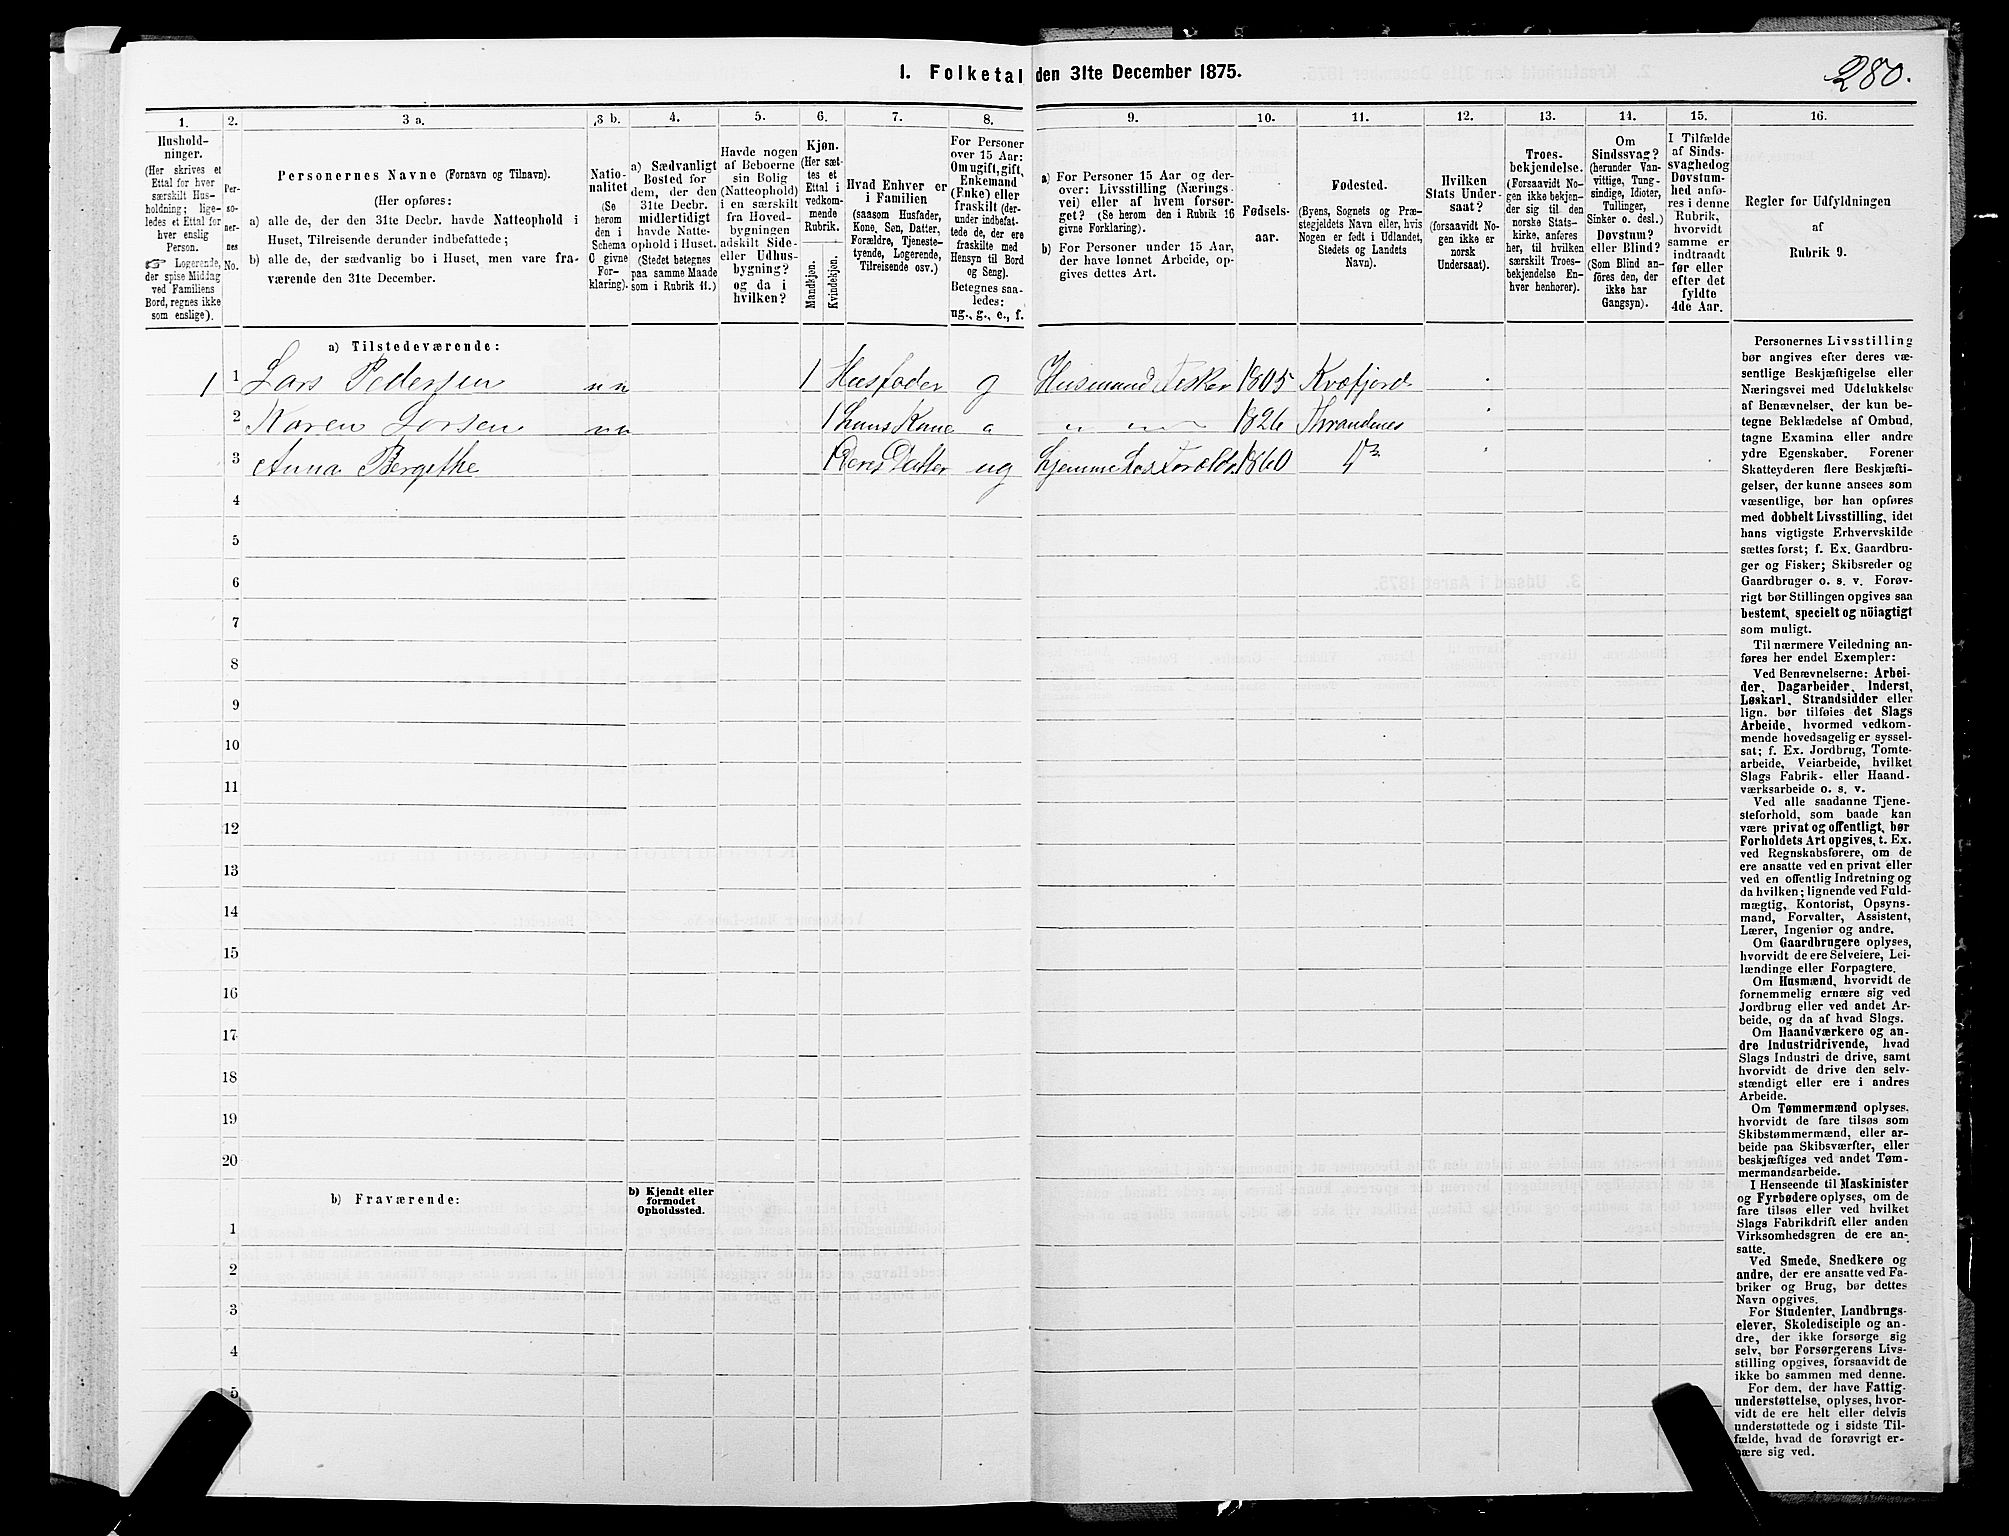 I. Folketal den 31te December 1875.
280.
1.
2.
3 a.
3 b.
4.
5.
6.
7.
8.
9.
10.
11.
12.
13.
14.
15.
16.
Hushold-
ninger.
(Her skrives et
Ettal for hver
særskilt Hus-
holdning; lige-
ledes et Ettal for
hver enslig
Person.
☞ Logerende,
der spise Middag
ved Familiens
Bord, regnes ikke
som enslige).
Per-
so-
ner-
nes
No.
Personernes Navne (Fornavn og Tilnavn).
(Her opføres:
a) alle de, der den 31te Decbr. havde Natteophold i
Huset, Tilreisende derunder indbefattede;
b) alle de, der sædvanlig bo i Huset, men vare fra-
værende den 31te December.
Natio-
nalitet
(Se
herom
den i
Schema
C givne
For-
klaring).
a) Sædvanligt
Bosted for
dem, der den
31te Decbr.
midlertidigt
havde Natte-
ophold i Huset.
(Stedet betegnes
paa samme Maade
som i Rubrik 11.)
Havde nogen
af Beboerne
sin Bolig
(Natteophold)
i en særskilt
fra Hoved-
bygningen
adskilt Side-
eller Udhus-
bygning?
og da i
hvilken?
Kjøn.
(Her sæt-
tes et
Ettal i
vedkom-
mende
Rubrik.
Mandkjøn.
Kvindekjøn.
Hvad Enhver er
i Familien
(saasom Husfader,
Kone, Søn, Datter,
Forældre, Tjeneste-
tyende, Logerende,
Tilreisende osv.)
For Personer
over 15 Aar:
Om ugift, gift,
Enkemand
(Enke) eller
fraskilt (der-
under indbefat-
tede de, der ere
fraskilte med
Hensyn til Bord
og Seng).
Betegnes saa-
ledes:
ug., g., e., f.
a) For Personer 15 Aar og der-
over: Livsstilling (Nærings-
vei) eller af hvem forsør-
get? (Se herom den i Rubrik 16
givne Forklaring).
b) For Personer under 15 Aar,
der have lønnet Arbeide, op-
gives dettes Art.
Fødsels-
aar.
Fødested.
(Byens, Sognets og Præ-
stegjeldets Navn eller, hvis
Nogen er født i Udlandet,
Stedets og Landets
Navn).
Hvilken
Stats Under-
saat?
(forsaavidt No-
gen ikke er
norsk
Undersaat).
Troes-
bekjendelse.
(Forsaavidt No-
gen ikke bekjen-
der sig til den
norske Stats-
kirke, anføres
her, til hvilken
særskilt Troes-
bekjendelse En-
hver henhører).
Om
Sindssvag?
(herunder Van-
vittige, Tung-
sindige, Idioter,
Tullinger,
Sinker o. desl.)
Døvstum?
eller Blind?
(Som Blind an-
føres den, der
ikke har
Gangsyn).
I Tilfælde
af Sinds-
svaghed og
Døvstum-
hed anfø-
res i denne
Rubrik,
hvorvidt
samme er
indtraadt
før eller
efter det
fyldte
4de Aar.
Regler for Udfyldningen
af
Rubrik 9.
a) Tilstedeværende:
1 1 Lars Pedersen nn 1 Husfader g Husmand Fisker 1805 Kvæfjord
2 Karen Larsen nn 1 hans Kone g 1826 Thrandenæs
3 Anna Bergithe 1 Deres Datter ug hjemme hos Foræld. 1860
4
5
6
7
8
9
10
11
12
13
14
15
16
17
18
19
20
b) Fraværende:
b) Kjendt eller
formodet
Opholdssted.
1
2
3
4
5
Personernes Livsstilling
bør angives efter deres væ-
sentlige Beskjæftigelse eller
Næringsvei med Udelukkelse
af Benævnelser, der kun be-
tegne Beklædelse af Ombud,
tagne Examina eller andre
ydre Egenskaber. Forener
Skatteyderen flere Beskjæfti-
gelser, der kunne ansees som
væsentlige, bør han opføres
med dobbelt Livsstilling, idet
hans vigtigste Erhvervskilde
sættes først; f. Ex. Gaardbru-
ger og Fisker; Skibsreder og
Gaardbruger o. s. v. Forøv-
rigt bør Stillingen opgives saa
bestemt, specielt og nöiagtigt
som muligt.
Til nærmere Veiledning an-
føres her endel Exempler:
Ved Benævnelserne: Arbei-
der, Dagarbeider, Inderst,
Løskarl, Strandsidder eller
lign. bør tilføies det Slags
Arbeide, hvormed vedkom-
mende hovedsagelig er syssel-
sat; f. Ex. Jordbrug, Tomte-
arbeide, Veiarbeide, hvilket
Slags Fabrik- eller Haand-
værksarbeide o. s. v.
Ved alle saadanne Tjene-
steforhold, som baade kan
være privat og offentligt, bør
Forholdets Art opgives, t. Ex.
ved Regnskabsførere, om de
ere ansatte ved en privat eller
ved en offentlig Indretning og
da hvilken; lignende ved Fuld-
mægtig, Kontorist, Opsyns-
mand, Forvalter, Assistent,
Lærer, Ingeniør og andre.
Om Gaardbrugere oplyses,
hvorvidt de ere Selveiere, Lei-
lændinge eller Forpagtere.
Om Husmænd, hvorvidt de
fornemmelig ernære sig ved
Jordbrug eller ved andet Ar-
beide, og da af hvad Slags.
Om Haandværkere og an-
dre Industridrivende, hvad
Slags Industri de drive, samt
hvorvidt de drive den selv-
stændigt eller ere i andres
Arbeide.
Om Tømmermænd oplyses,
hvorvidt de fare tilsøs som
Skibstømmermænd, eller ar-
beide paa Skibsværfter, eller
beskjæftiges ved andet Tøm-
mermandsarbeide.
I Henseende til Maskinister
og Fyrbødere oplyses, om de
fare tilsøs eller ved hvilket
Slags Fabrikdrift eller anden
Virksomhedsgren de ere an-
satte.
Ved Smede, Snedkere og
andre, der ere ansatte ved Fa-
briker og Brug, bør dettes
Navn opgives.
For Studenter, Landbrugs-
elever, Skoledisciple og an-
dre, der ikke forsørge sig
selv, bør Forsørgerens Livs-
stilling opgives, forsaavidt de
ikke bo sammen med denne.
For dem, der have Fattig-
understøttelse, oplyses, hvor-
vidt de ere helt eller delvis
understøttede og i sidste Til-
fælde, hvad de forøvrigt er-
nære sig ved.